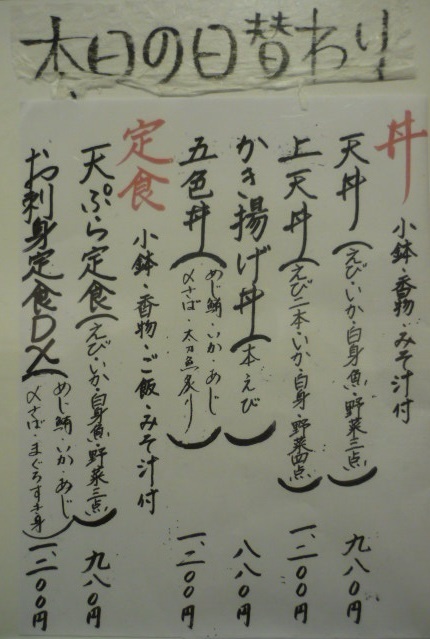 本日の日替わり
丼 小鉢・香物・みそ汁付
天丼(えび・いか・白身魚・野菜三点) 九八〇円
上天丼(えび二本・いか・白身・野菜四点) 一、二〇〇円
かき揚げ丼(本・えび) 八八〇円
五色丼(めじ鮪・いか・あじ
〆さば・太刀魚炙り) 一、二〇〇円
定食 小鉢・香物・ご飯・みそ汁付
天ぷら定食(えび・いか・白身魚・野菜三点) 九八〇円
お刺身定食DX(めじ鮪・いか・あじ
〆さば・まぐろすき身) 一、二〇〇円